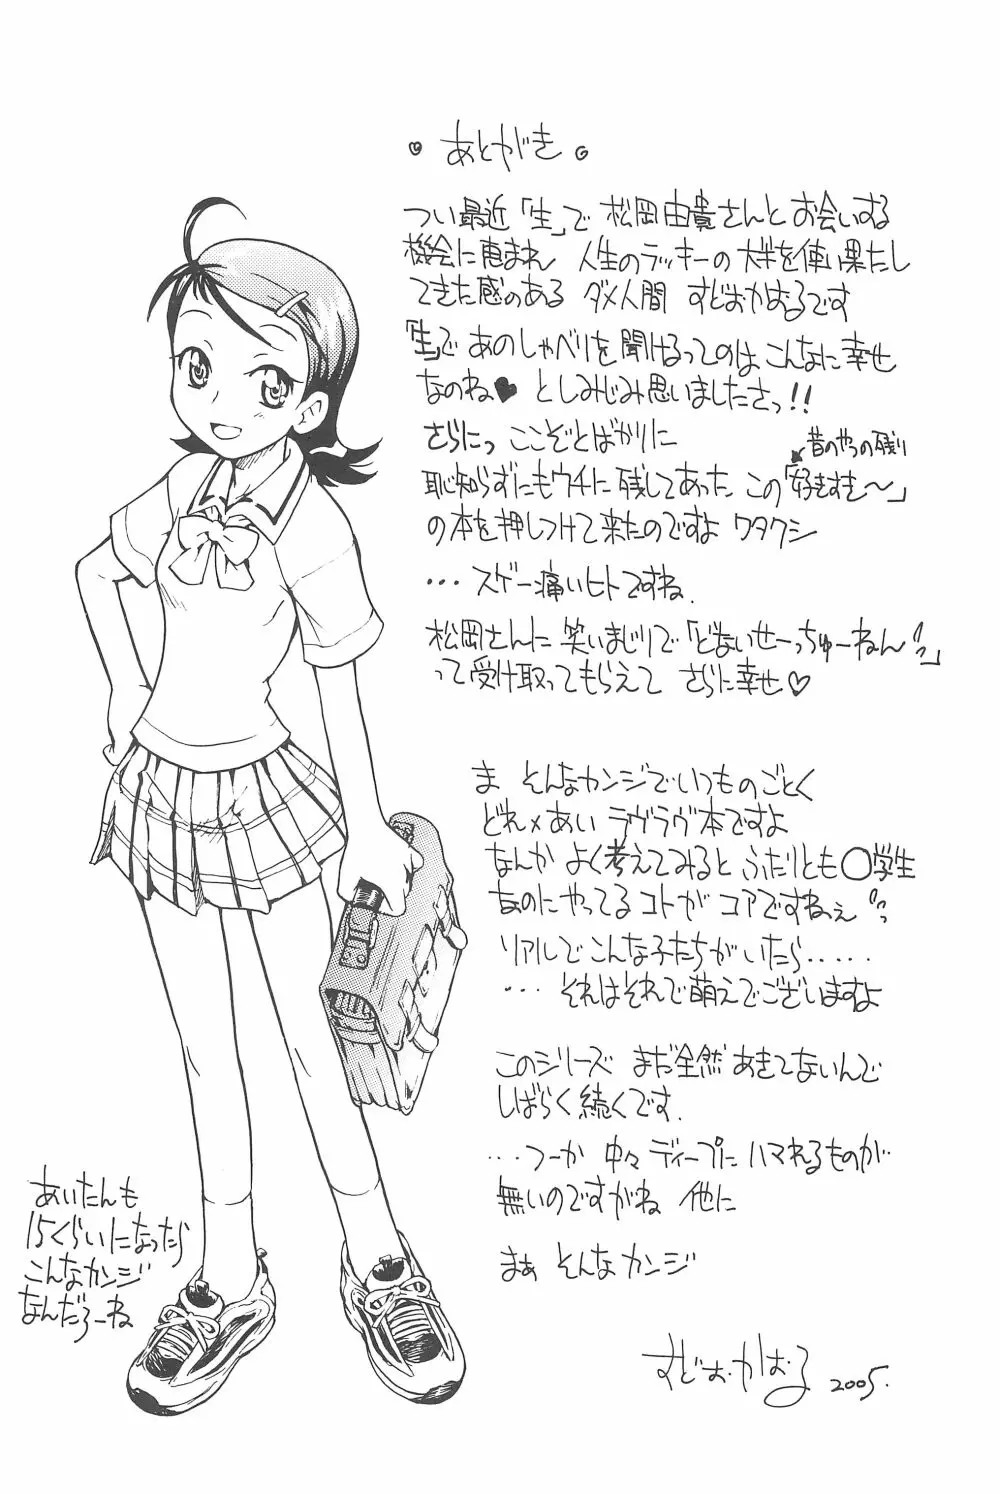 あとがき
つい最近「生」で 松岡由貴さんとお会いする
機会に恵まれ 人生のラッキーの大半を使い果たし
てきた感のある ダメ人間 すどおかおるです
「生」で あのしゃべりを聞けるってのは こんなに幸せ
なのね♥ としみじみ思いましたさっ!!
さらにっ ここぞとばかりに
昔のやつの残り
恥知らずにもウチに残してあった この「好きすき〜」
の本を押しつけて来たのですよ ワタクシ
・・・スゲー痛いヒトですね.
松岡さんに 笑いまじりで「どないせーっちゅーねん!!」
って受け取ってもらえて さらに幸せ♡
ま そんなカンジでいつものごとく
どれみ×あい ラヴラヴ本ですよ
なんか よく考えてみると ふたりとも〇学生
なのにやってるコトが コアですねぇ
リアルでこんな子たちがいたら・・・・・
・・・それはそれで萌えでございますよ
このシリーズ まだ全然 あきてないんで
しばらく続くです.
・・・つーか 中々 ディープに ハマれるものが
無いのですがね 他に
まぁ そんなカンジ
あいたんも
15くらいになったら
こんなカンジ
なんだろーね
すどおかおる 2005.